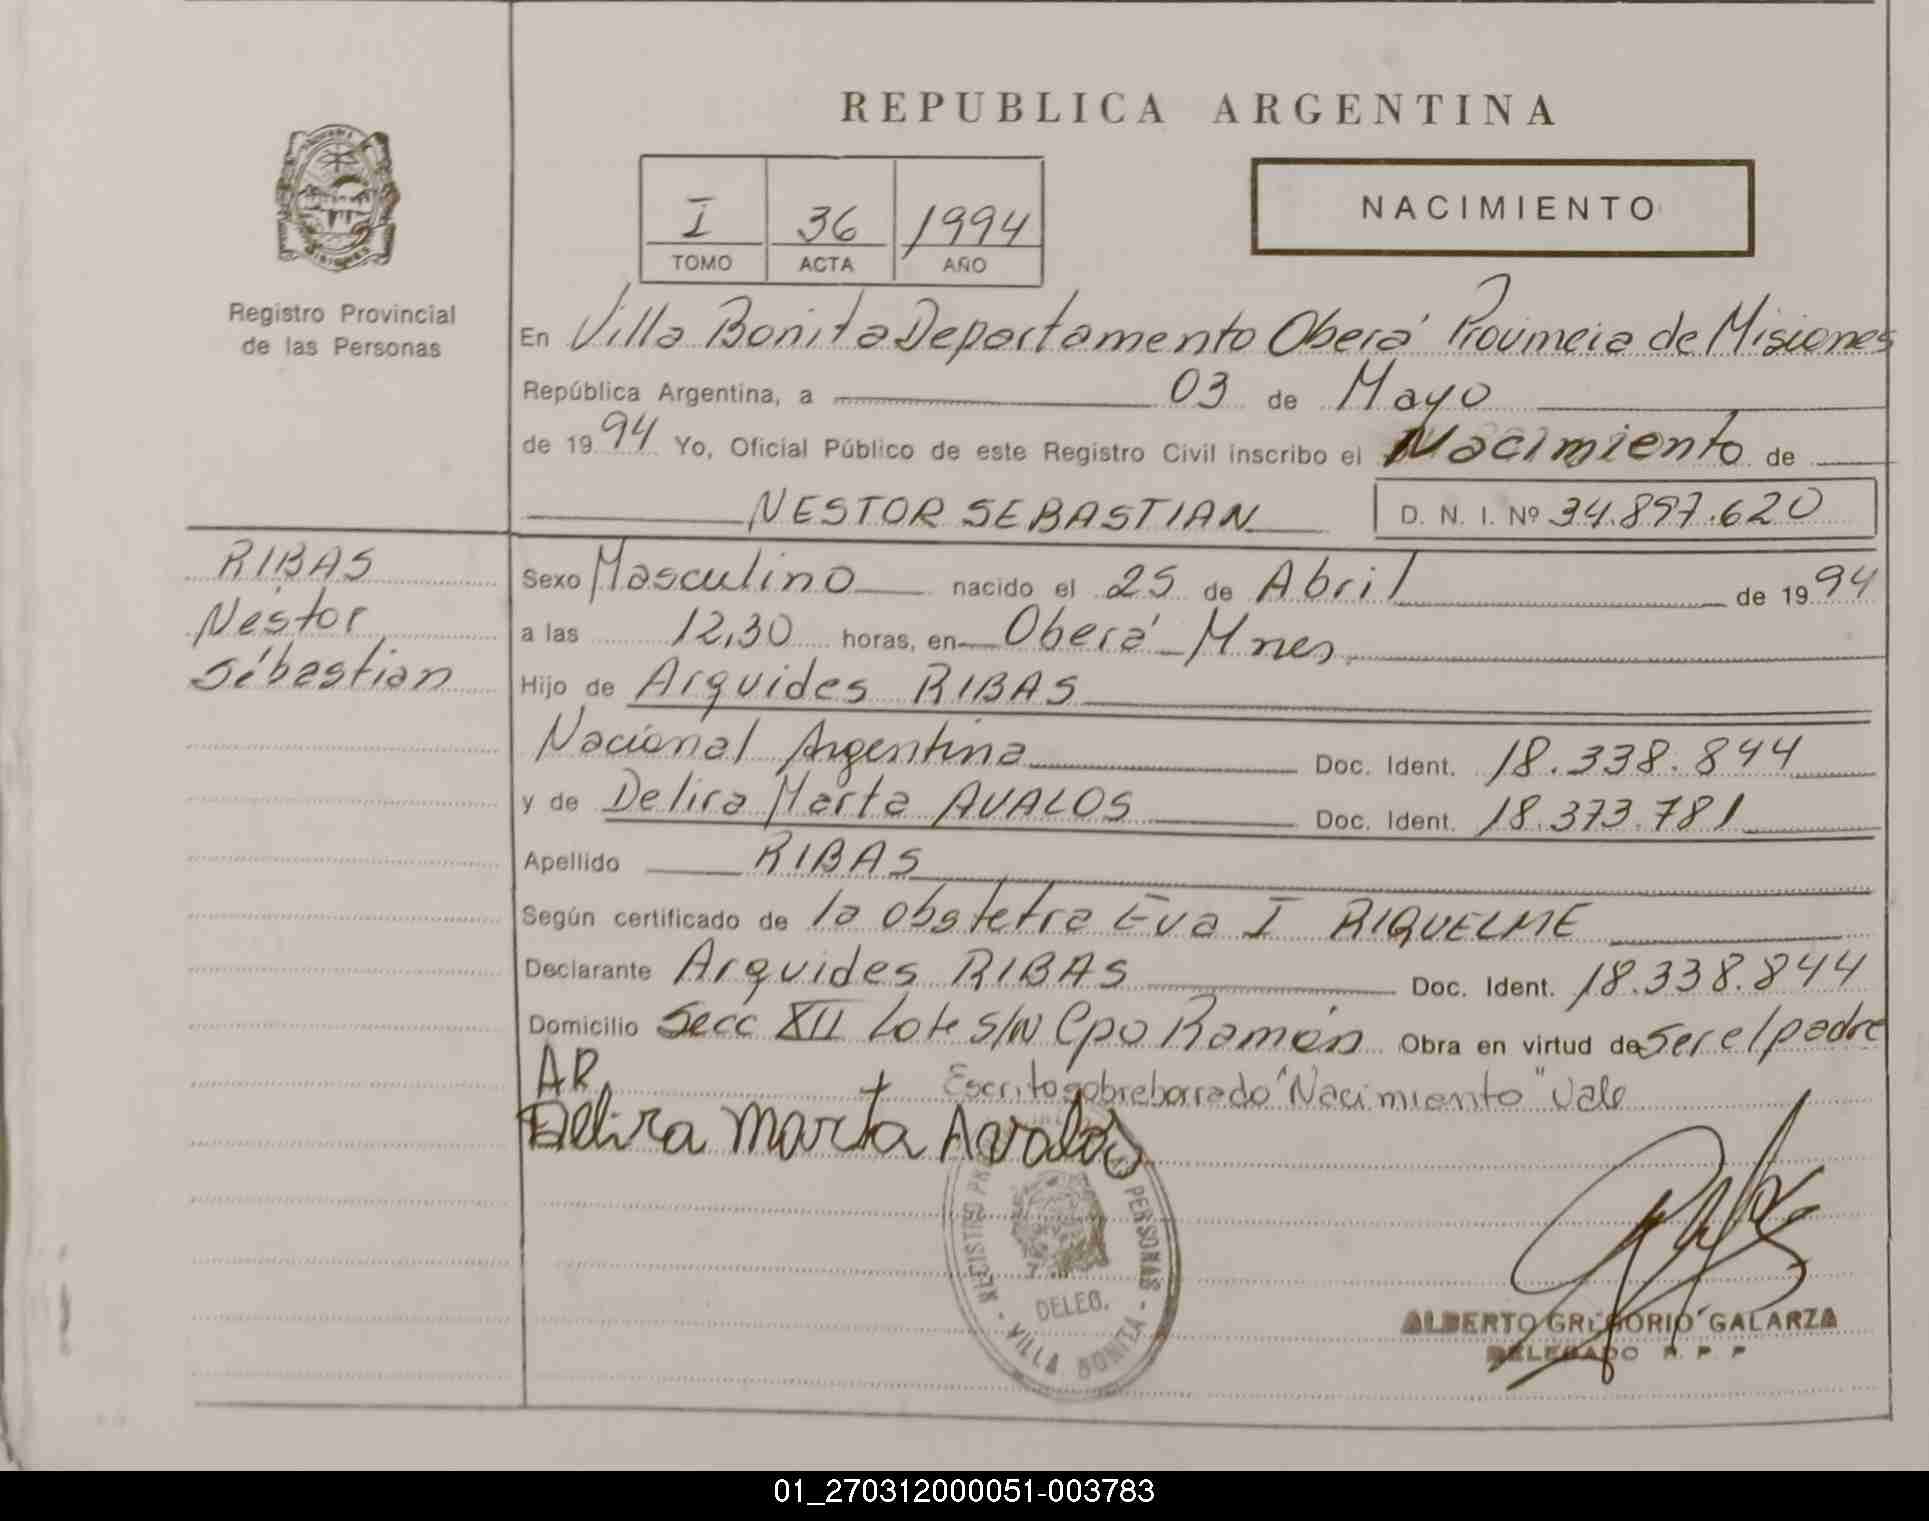 REPUBLICA ARGENTINA
I 36 1994
TOMO ACTA AÑO
NACIMIENTO
Registro Provincial
de las Personas
En Villa Bonita Departamento Oberá Provincia de Misiones
República Argentina, a 03 de Mayo
de 1994 Yo, Oficial Público de este Registro Civil inscribo el Nacimiento de
NESTOR SEBASTIAN D. N. I. Nº 34.897.620
RIBAS
Néstor
Sebastian
Sexo Masculino nacido el 25 de Abril de 1994
a las 12,30 horas, en Oberá Mnes
Hijo de Arquides RIBAS
Nacional Argentina Doc. Ident. 18.338.844
y de Delira Marta AVALOS Doc. Ident. 18.373.781
Apellido RIBAS
Según certificado de la obstetra Eva I RIQUELME
Declarante Arquides RIBAS Doc. Ident. 18.338.844
Domicilio Secc XII Lote S/N Cpo Ramón Obra en virtud de ser el padre
AR. Escrito sobreborrado "Nacimiento" Vale
Delira Marta Avalos
REGISTRO PERSONAS
DELEG.
VILLA BONITA
ALBERTO GREGORIO GALARZA
DELEGADO R. P. P
01_270312000051-003783